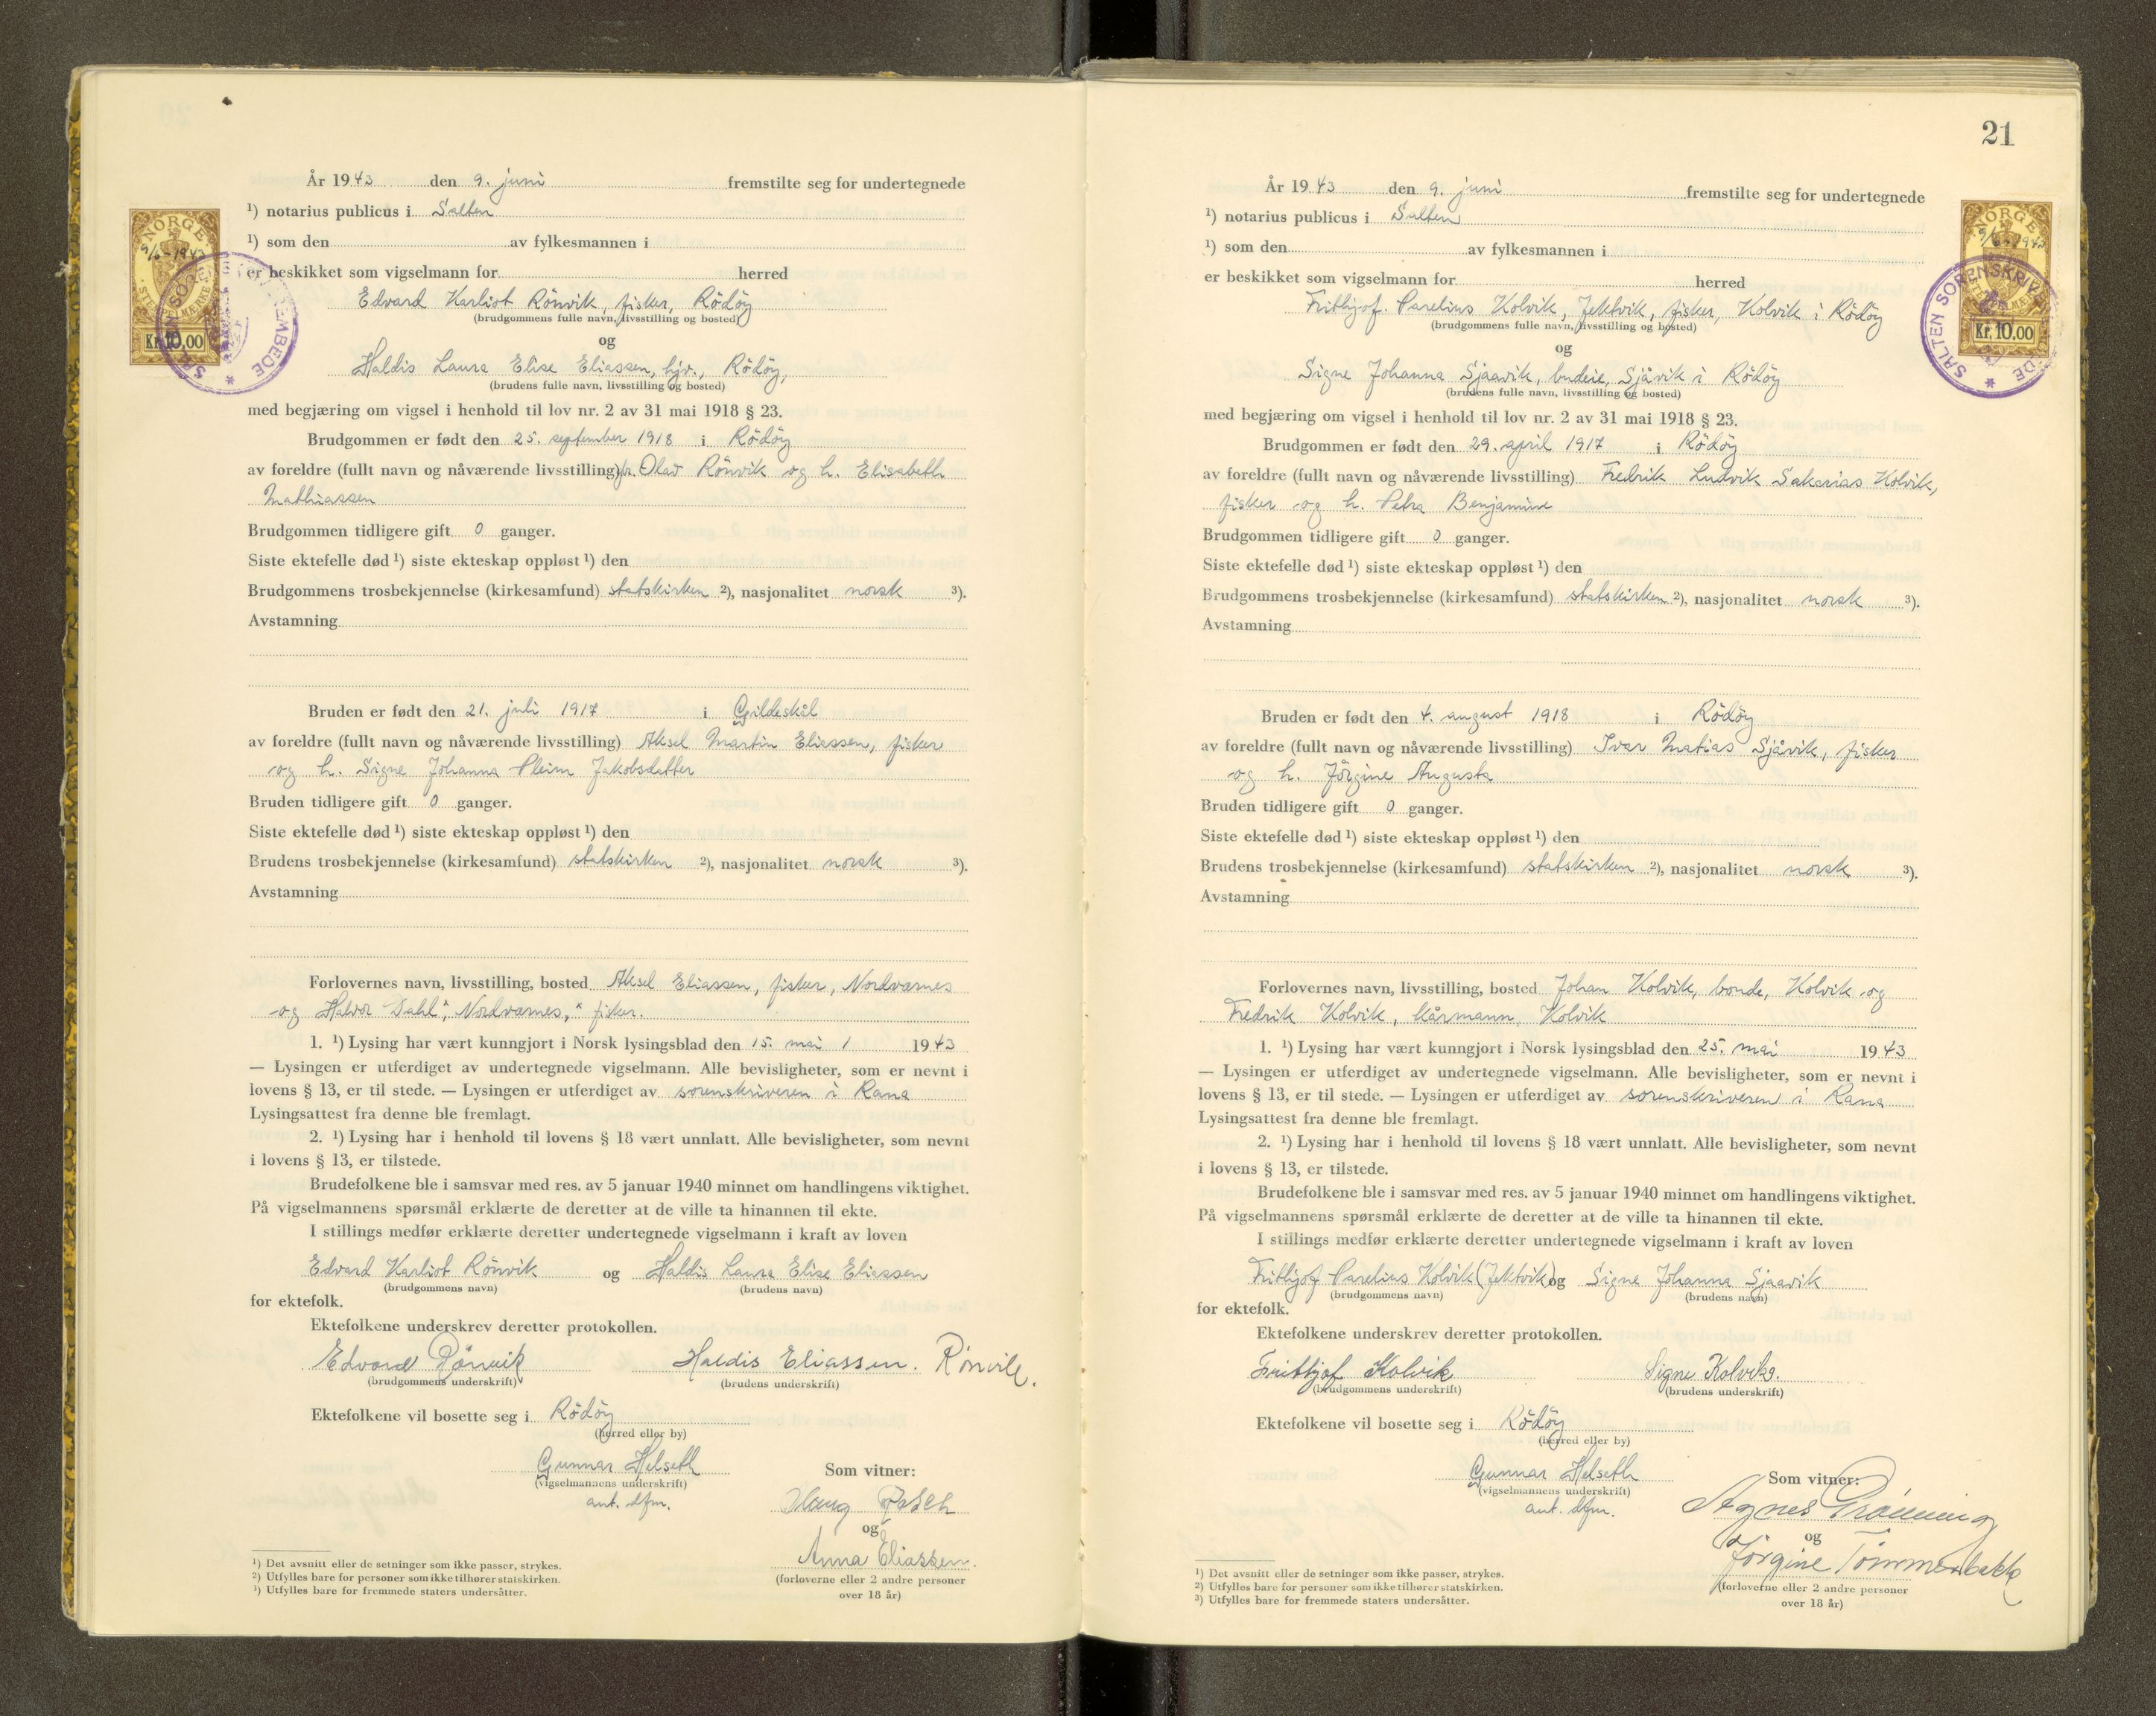 År 1943 den 9. juni fremstilte seg for undertegnede
¹) notarius publicus i Salten
¹) som den av fylkesmannen i
er beskikket som vigselmann for herred
Edvard Karliot Rönvik, fisker, Rödöy
(brudgommens fulle navn, livsstilling og bosted)
og
Haldis Laura Elise Eliassen, hjv., Rödöy,
(brudens fulle navn, livsstilling og bosted)
med begjæring om vigsel i henhold til lov nr. 2 av 31 mai 1918 § 23.
Brudgommen er født den 25. september 1918 i Rödöy
av foreldre (fullt navn og nåværende livsstilling) Olav Rönvik og h. Elisabeth
Mathiassen
Brudgommen tidligere gift 0 ganger.
Siste ektefelle død ¹) siste ekteskap oppløst ¹) den
Brudgommens trosbekjennelse (kirkesamfund) statskirken ²), nasjonalitet norsk ³).
Avstamning
Bruden er født den 21. juli 1917 i Gildeskål
av foreldre (fullt navn og nåværende livsstilling) Aksel Martin Eliassen, fisker
og h. Signe Johanna Pleim Jakobsdatter
Bruden tidligere gift 0 ganger.
Siste ektefelle død ¹) siste ekteskap oppløst ¹) den
Brudens trosbekjennelse (kirkesamfund) statskirken ²), nasjonalitet norsk ³).
Avstamning
Forlovernes navn, livsstilling, bosted Aksel Eliassen, fisker, Nordvarnes
og Halvor Dahl, Nordvarnes, fisker.
1. ¹) Lysing har vært kunngjort i Norsk lysingsblad den 15. mai 1943
— Lysingen er utferdiget av undertegnede vigselmann. Alle bevisligheter, som er nevnt i
lovens § 13, er til stede. — Lysingen er utferdiget av sorenskriveren i Rana
Lysingsattest fra denne ble fremlagt.
2. ¹) Lysing har i henhold til lovens § 18 vært unnlatt. Alle bevisligheter, som nevnt
i lovens § 13, er tilstede.
Brudefolkene ble i samsvar med res. av 5 januar 1940 minnet om handlingens viktighet.
På vigselmannens spørsmål erklærte de deretter at de ville ta hinannen til ekte.
I stillings medfør erklærte deretter undertegnede vigselmann i kraft av loven
Edvard Karliot Rönvik og Haldis Laura Elise Eliassen
(brudgommens navn) (brudens navn)
for ektefolk.
Ektefolkene underskrev deretter protokollen.
Edvard Rönvik Haldis Eliassen. Rönvik.
(brudgommens underskrift) (brudens underskrift)
Ektefolkene vil bosette seg i Rödöy
(herred eller by)
Gunnar Helseth Som vitner:
(vigselmannens underskrift)
aut. dfm.
og
Anna Eliassen.
(forloverne eller 2 andre personer
over 18 år)
¹) Det avsnitt eller de setninger som ikke passer, strykes.
²) Utfylles bare for personer som ikke tilhører statskirken.
³) Utfylles bare for fremmede staters undersåtter.
NORGE
9/6-1943
Kr. 10,00
21
År 1943 den 9. juni fremstilte seg for undertegnede
¹) notarius publicus i Salten
¹) som den av fylkesmannen i
er beskikket som vigselmann for herred
Frithjof Parelius Kolvik, Jektvik, fisker, Kolvik i Rödöy
(brudgommens fulle navn, livsstilling og bosted)
og
Signe Johanna Sjaavik, budeie, Sjåvik i Rödöy
(brudens fulle navn, livsstilling og bosted)
med begjæring om vigsel i henhold til lov nr. 2 av 31 mai 1918 § 23.
Brudgommen er født den 29. april 1917 i Rödöy
av foreldre (fullt navn og nåværende livsstilling) Fredrik Ludvik Sakarias Kolvik,
fisker og h. Petra Benjamine
Brudgommen tidligere gift 0 ganger.
Siste ektefelle død ¹) siste ekteskap oppløst ¹) den
Brudgommens trosbekjennelse (kirkesamfund) statskirken ²), nasjonalitet norsk ³).
Avstamning
Bruden er født den 4. august 1918 i Rödöy
av foreldre (fullt navn og nåværende livsstilling) Ivar Matias Sjåvik, fisker
og h. Jörgine Augusta
Bruden tidligere gift 0 ganger.
Siste ektefelle død ¹) siste ekteskap oppløst ¹) den
Brudens trosbekjennelse (kirkesamfund) statskirken ²), nasjonalitet norsk ³).
Avstamning
Forlovernes navn, livsstilling, bosted Johan Kolvik, bonde, Kolvik og
Fredrik Kolvik, kårmann, Kolvik
1. ¹) Lysing har vært kunngjort i Norsk lysingsblad den 25. mai 1943
— Lysingen er utferdiget av undertegnede vigselmann. Alle bevisligheter, som er nevnt i
lovens § 13, er til stede. — Lysingen er utferdiget av sorenskriveren i Rana
Lysingsattest fra denne ble fremlagt.
2. ¹) Lysing har i henhold til lovens § 18 vært unnlatt. Alle bevisligheter, som nevnt
i lovens § 13, er tilstede.
Brudefolkene ble i samsvar med res. av 5 januar 1940 minnet om handlingens viktighet.
På vigselmannens spørsmål erklærte de deretter at de ville ta hinannen til ekte.
I stillings medfør erklærte deretter undertegnede vigselmann i kraft av loven
Frithjof Parelius Kolvik (Jektvik) og Signe Johanna Sjaavik
(brudgommens navn) (brudens navn)
for ektefolk.
Ektefolkene underskrev deretter protokollen.
Frithjof Kolvik Signe Kolvik.
(brudgommens underskrift) (brudens underskrift)
Ektefolkene vil bosette seg i Rödöy
(herred eller by)
Gunnar Helseth Som vitner:
(vigselmannens underskrift)
aut. dfm. Agnes Grönning
og
Jörgine Tömmerbakk
(forloverne eller 2 andre personer
over 18 år)
¹) Det avsnitt eller de setninger som ikke passer, strykes.
²) Utfylles bare for personer som ikke tilhører statskirken.
³) Utfylles bare for fremmede staters undersåtter.
NORGE
9/6-1943
SALTEN SORENSKRIVER
Kr. 10,00